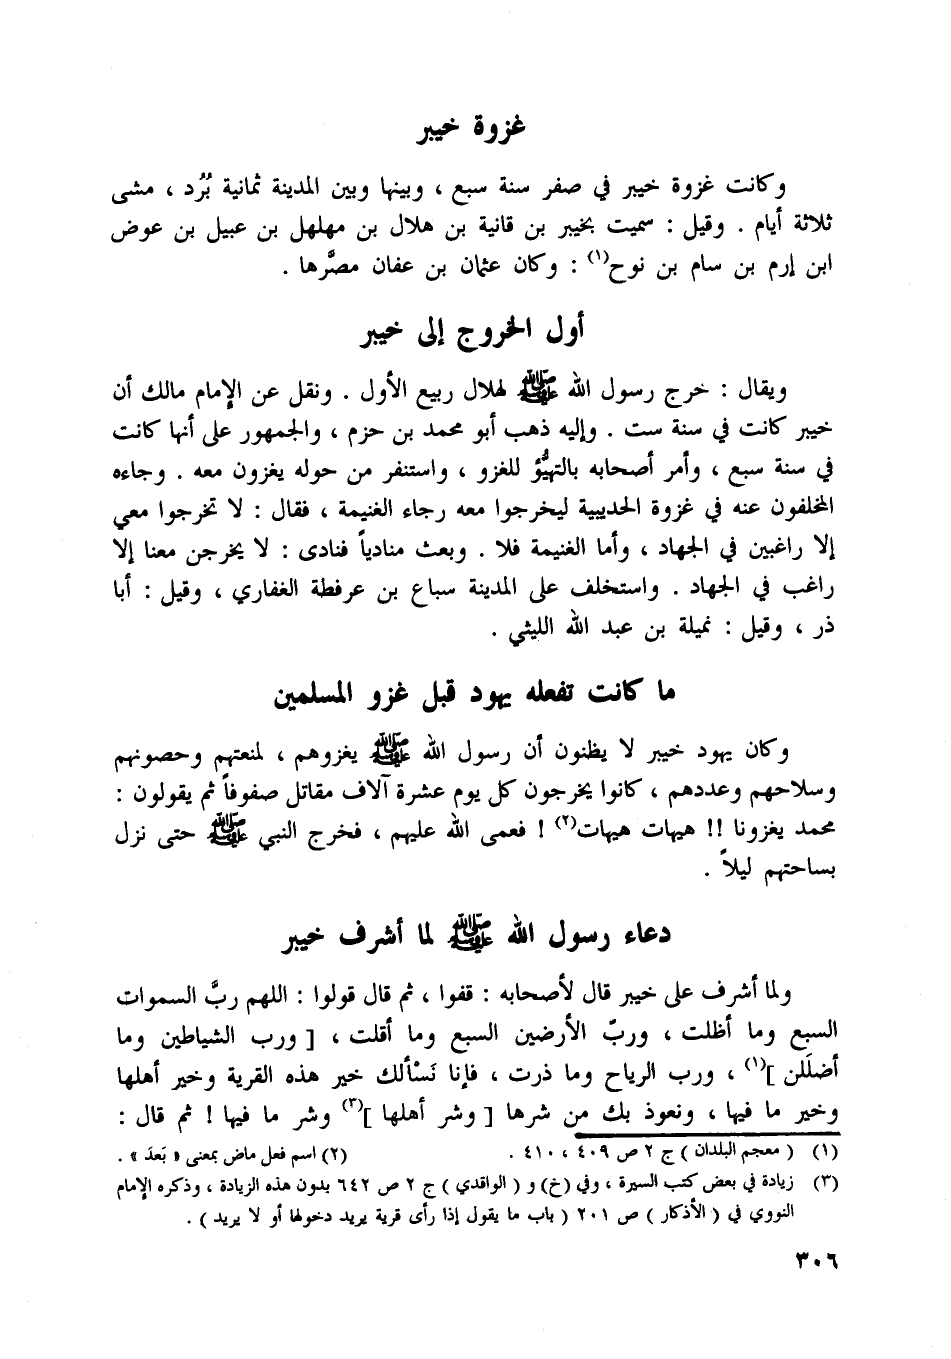 غزوة خيبر
وكانت غزوة خيبر في صفر سنة سبع ، وبينها وبين المدينة ثمانية بُرُد ، مشى
ثلاثة أيام . وقيل : سميت بخيبر بن قانية بن هلال بن مهلهل بن عبيل بن عوض
ابن إرم بن سام بن نوح(١) : وكان عثمان بن عفان مصَّرها .
أول الخروج إلى خيبر
ويقال : خرج رسول الله ﷺ لهلال ربيع الأول . ونقل عن الإمام مالك أن
خيبر كانت في سنة ست . وإليه ذهب أبو محمد بن حزم ، والجمهور على أنها كانت
في سنة سبع ، وأمر أصحابه بالتهيُّؤ للغزو ، واستنفر من حوله يغزون معه . وجاءه
المخلفون عنه في غزوة الحديبية ليخرجوا معه رجاء الغنيمة ، فقال : لا تخرجوا معي
إلا راغبين في الجهاد ، وأما الغنيمة فلا . وبعث منادياً فنادى : لا يخرجن معنا إلا
راغب في الجهاد . واستخلف على المدينة سباع بن عرفطة الغفاري ، وقيل : أبا
ذر ، وقيل : نميلة بن عبد الله الليثي .
ما كانت تفعله يهود قبل غزو المسلمين
وكان يهود خيبر لا يظنون أن رسول الله ﷺ يغزوهم ، لمنعتهم وحصونهم
وسلاحهم وعددهم ، كانوا يخرجون كل يوم عشرة آلاف مقاتل صفوفاً ثم يقولون :
محمد يغزونا !! هيهات هيهات(٢) ! فعمى الله عليهم ، فخرج النبي ﷺ حتى نزل
بساحتهم ليلاً .
دعاء رسول الله ﷺ لما أشرف خيبر
ولما أشرف على خيبر قال لأصحابه : قفوا ، ثم قال قولوا : اللهم ربَّ السموات
السبع وما أظلت ، وربّ الأرضين السبع وما أقلت ، [ ورب الشياطين وما
أضلَلن ](١) ، ورب الرياح وما ذرت ، فإنا نَسْألك خير هذه القرية وخير أهلها
وخير ما فيها ، ونعوذ بك من شرها [ وشر أهلها ](٣) وشر ما فيها ! ثم قال :
(١) ( معجم البلدان ) ج ٢ ص ٤٠٩ ، ٤١٠ . (٢) اسم فعل ماض بمعنى « بَعدَ » .
(٣) زيادة في بعض كتب السيرة ، وفي (خ) و ( الواقدي ) ج ٢ ص ٦٤٢ بدون هذه الزيادة ، وذكره الإمام
النووي في ( الأذكار ) ص ٢٠١ ( باب ما يقول إذا رأى قرية يريد دخولها أو لا يريد ) .
٣٠٦